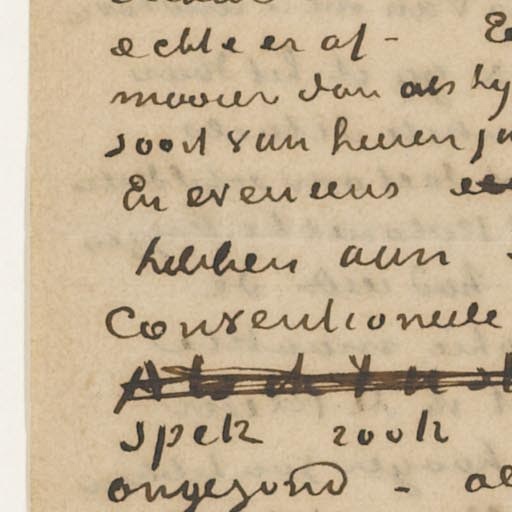 echte er af - E
mooier dan als hy
soort van heeren ju
En eveneens
hebben aan
Conventioneele
spek zook
ongezond - al